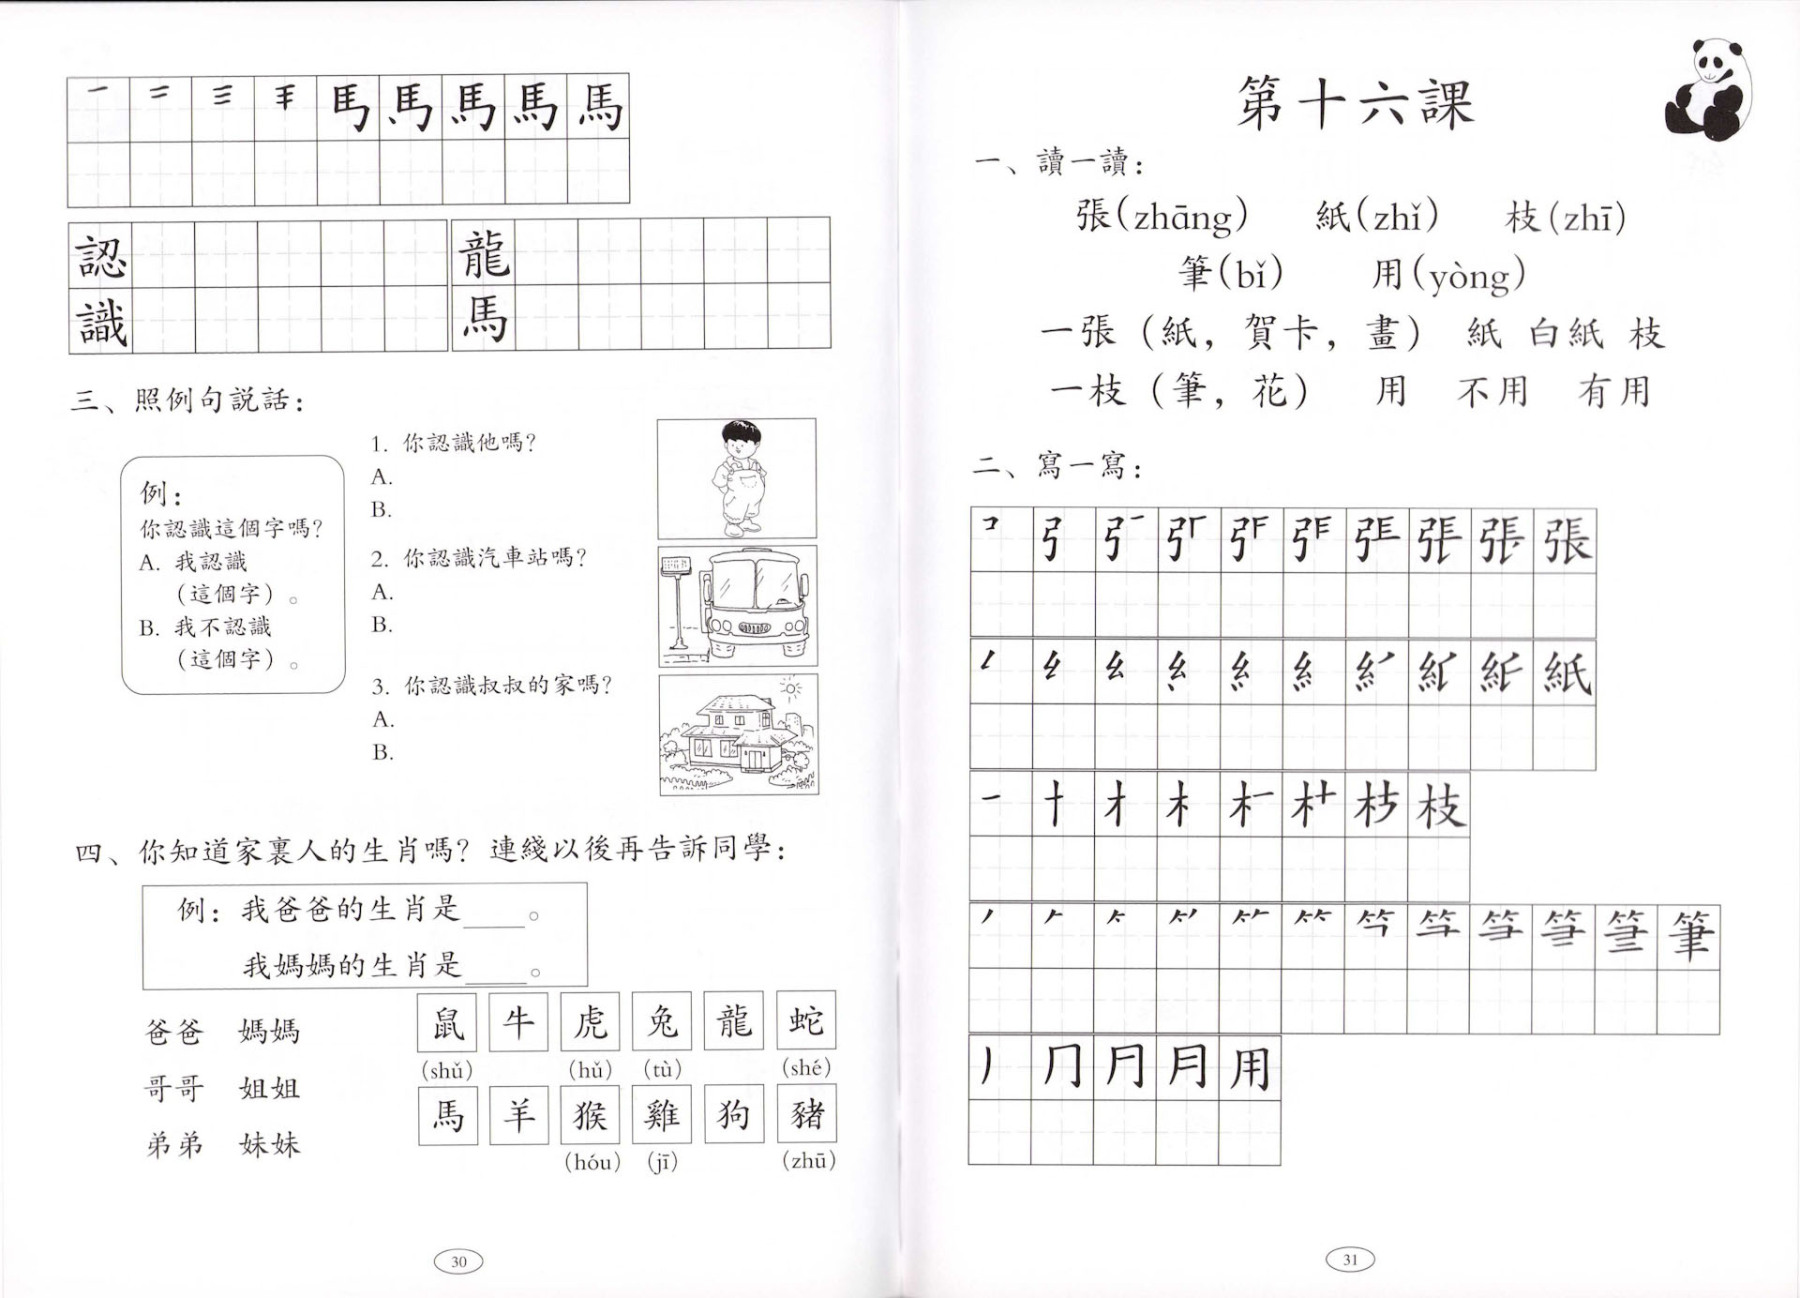 一 二 三 手 馬 馬 馬 馬 馬
認 龍
識 馬
三、照例句説話：
例：
你認識這個字嗎？
A. 我認識
（這個字）。
B. 我不認識
（這個字）。
1. 你認識他嗎？
A.
B.
2. 你認識汽車站嗎？
A.
B.
3. 你認識叔叔的家嗎？
A.
B.
四、你知道家裏人的生肖嗎？連綫以後再告訴同學：
例：我爸爸的生肖是____。
我媽媽的生肖是____。
爸爸 媽媽
哥哥 姐姐
弟弟 妹妹
鼠 牛 虎 兔 龍 蛇
(shǔ) (hǔ) (tù) (shé)
馬 羊 猴 雞 狗 豬
(hóu) (jī) (zhū)
30
第十六課
一、讀一讀：
張(zhāng) 紙(zhǐ) 枝(zhī)
筆(bǐ) 用(yòng)
一張（紙，賀卡，畫） 紙 白紙 枝
一枝（筆，花） 用 不用 有用
二、寫一寫：
張
紙
枝
筆
用
31